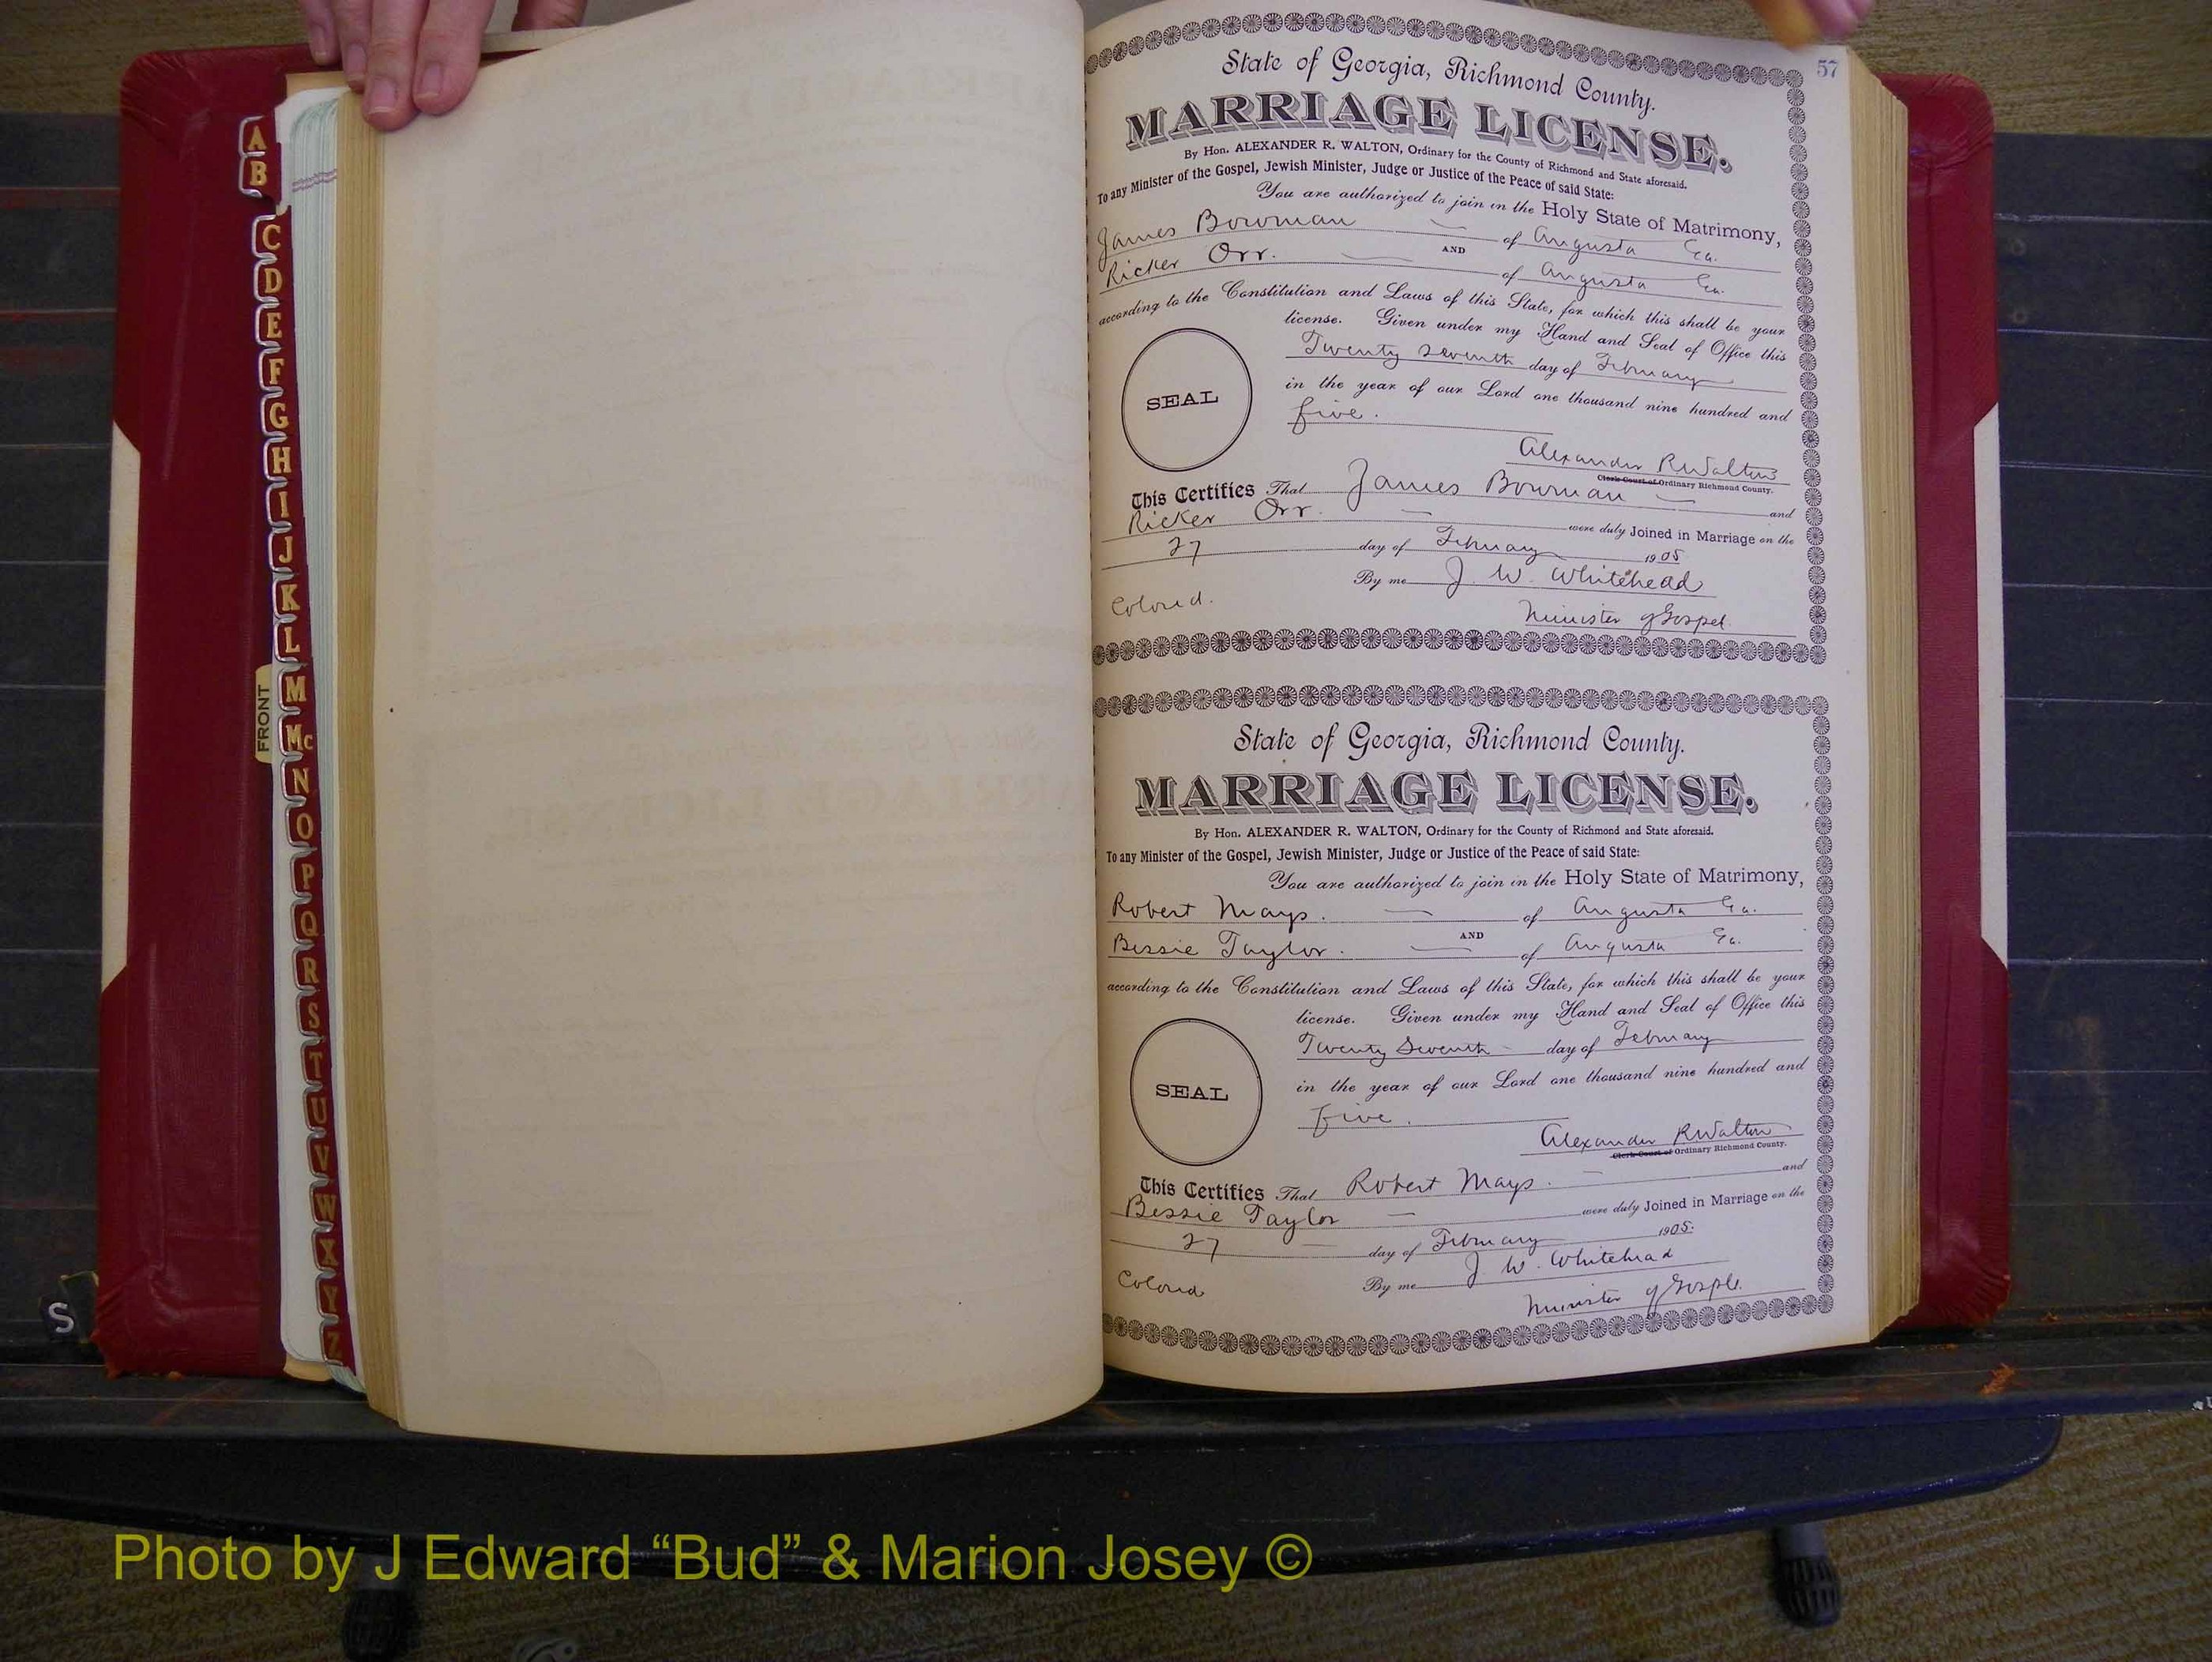 A
B
C
D
E
F
G
H
I
J
K
L
FRONT
M
Mc
N
O
P
Q
R
S
T
U
V
W
X
Y
Z
S
57
State of Georgia, Richmond County.
MARRIAGE LICENSE.
By Hon. ALEXANDER R. WALTON, Ordinary for the County of Richmond and State aforesaid.
To any Minister of the Gospel, Jewish Minister, Judge or Justice of the Peace of said State:
You are authorized to join in the Holy State of Matrimony,
James Bowman of Augusta Ga.
AND
Ricker Orr. of Augusta Ga.
according to the Constitution and Laws of this State, for which this shall be your
license. Given under my Hand and Seal of Office this
Twenty Seventh day of February
in the year of our Lord one thousand nine hundred and
five.
SEAL
Alexander R Walton
Clerk Court of Ordinary Richmond County.
This Certifies That James Bowman and
Ricker Orr. were duly Joined in Marriage on the
27 day of February 1905
By me J. W. Whitehead
Colored. Minister of Gospel.
State of Georgia, Richmond County.
MARRIAGE LICENSE.
By Hon. ALEXANDER R. WALTON, Ordinary for the County of Richmond and State aforesaid.
To any Minister of the Gospel, Jewish Minister, Judge or Justice of the Peace of said State:
You are authorized to join in the Holy State of Matrimony,
Robert Mays. of Augusta Ga.
AND
Bessie Taylor. of Augusta Ga.
according to the Constitution and Laws of this State, for which this shall be your
license. Given under my Hand and Seal of Office this
Twenty Seventh day of February
in the year of our Lord one thousand nine hundred and
five.
SEAL
Alexander R Walton
Clerk Court of Ordinary Richmond County.
This Certifies That Robert Mays. and
Bessie Taylor were duly Joined in Marriage on the
27 day of February 1905.
By me J. W. Whitehead
Colored Minister of Gosple.
Photo by J Edward “Bud” & Marion Josey ©